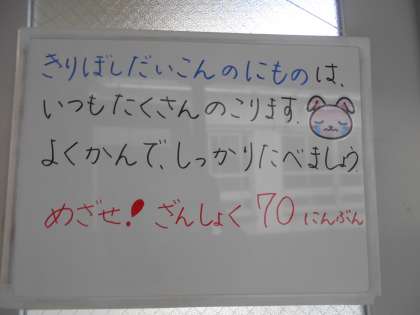 きりぼしだいこんのにものは、
いつもたくさんのこります。
よくかんで、しっかりたべましょう
めざせ！ざんしょく70にんぶん